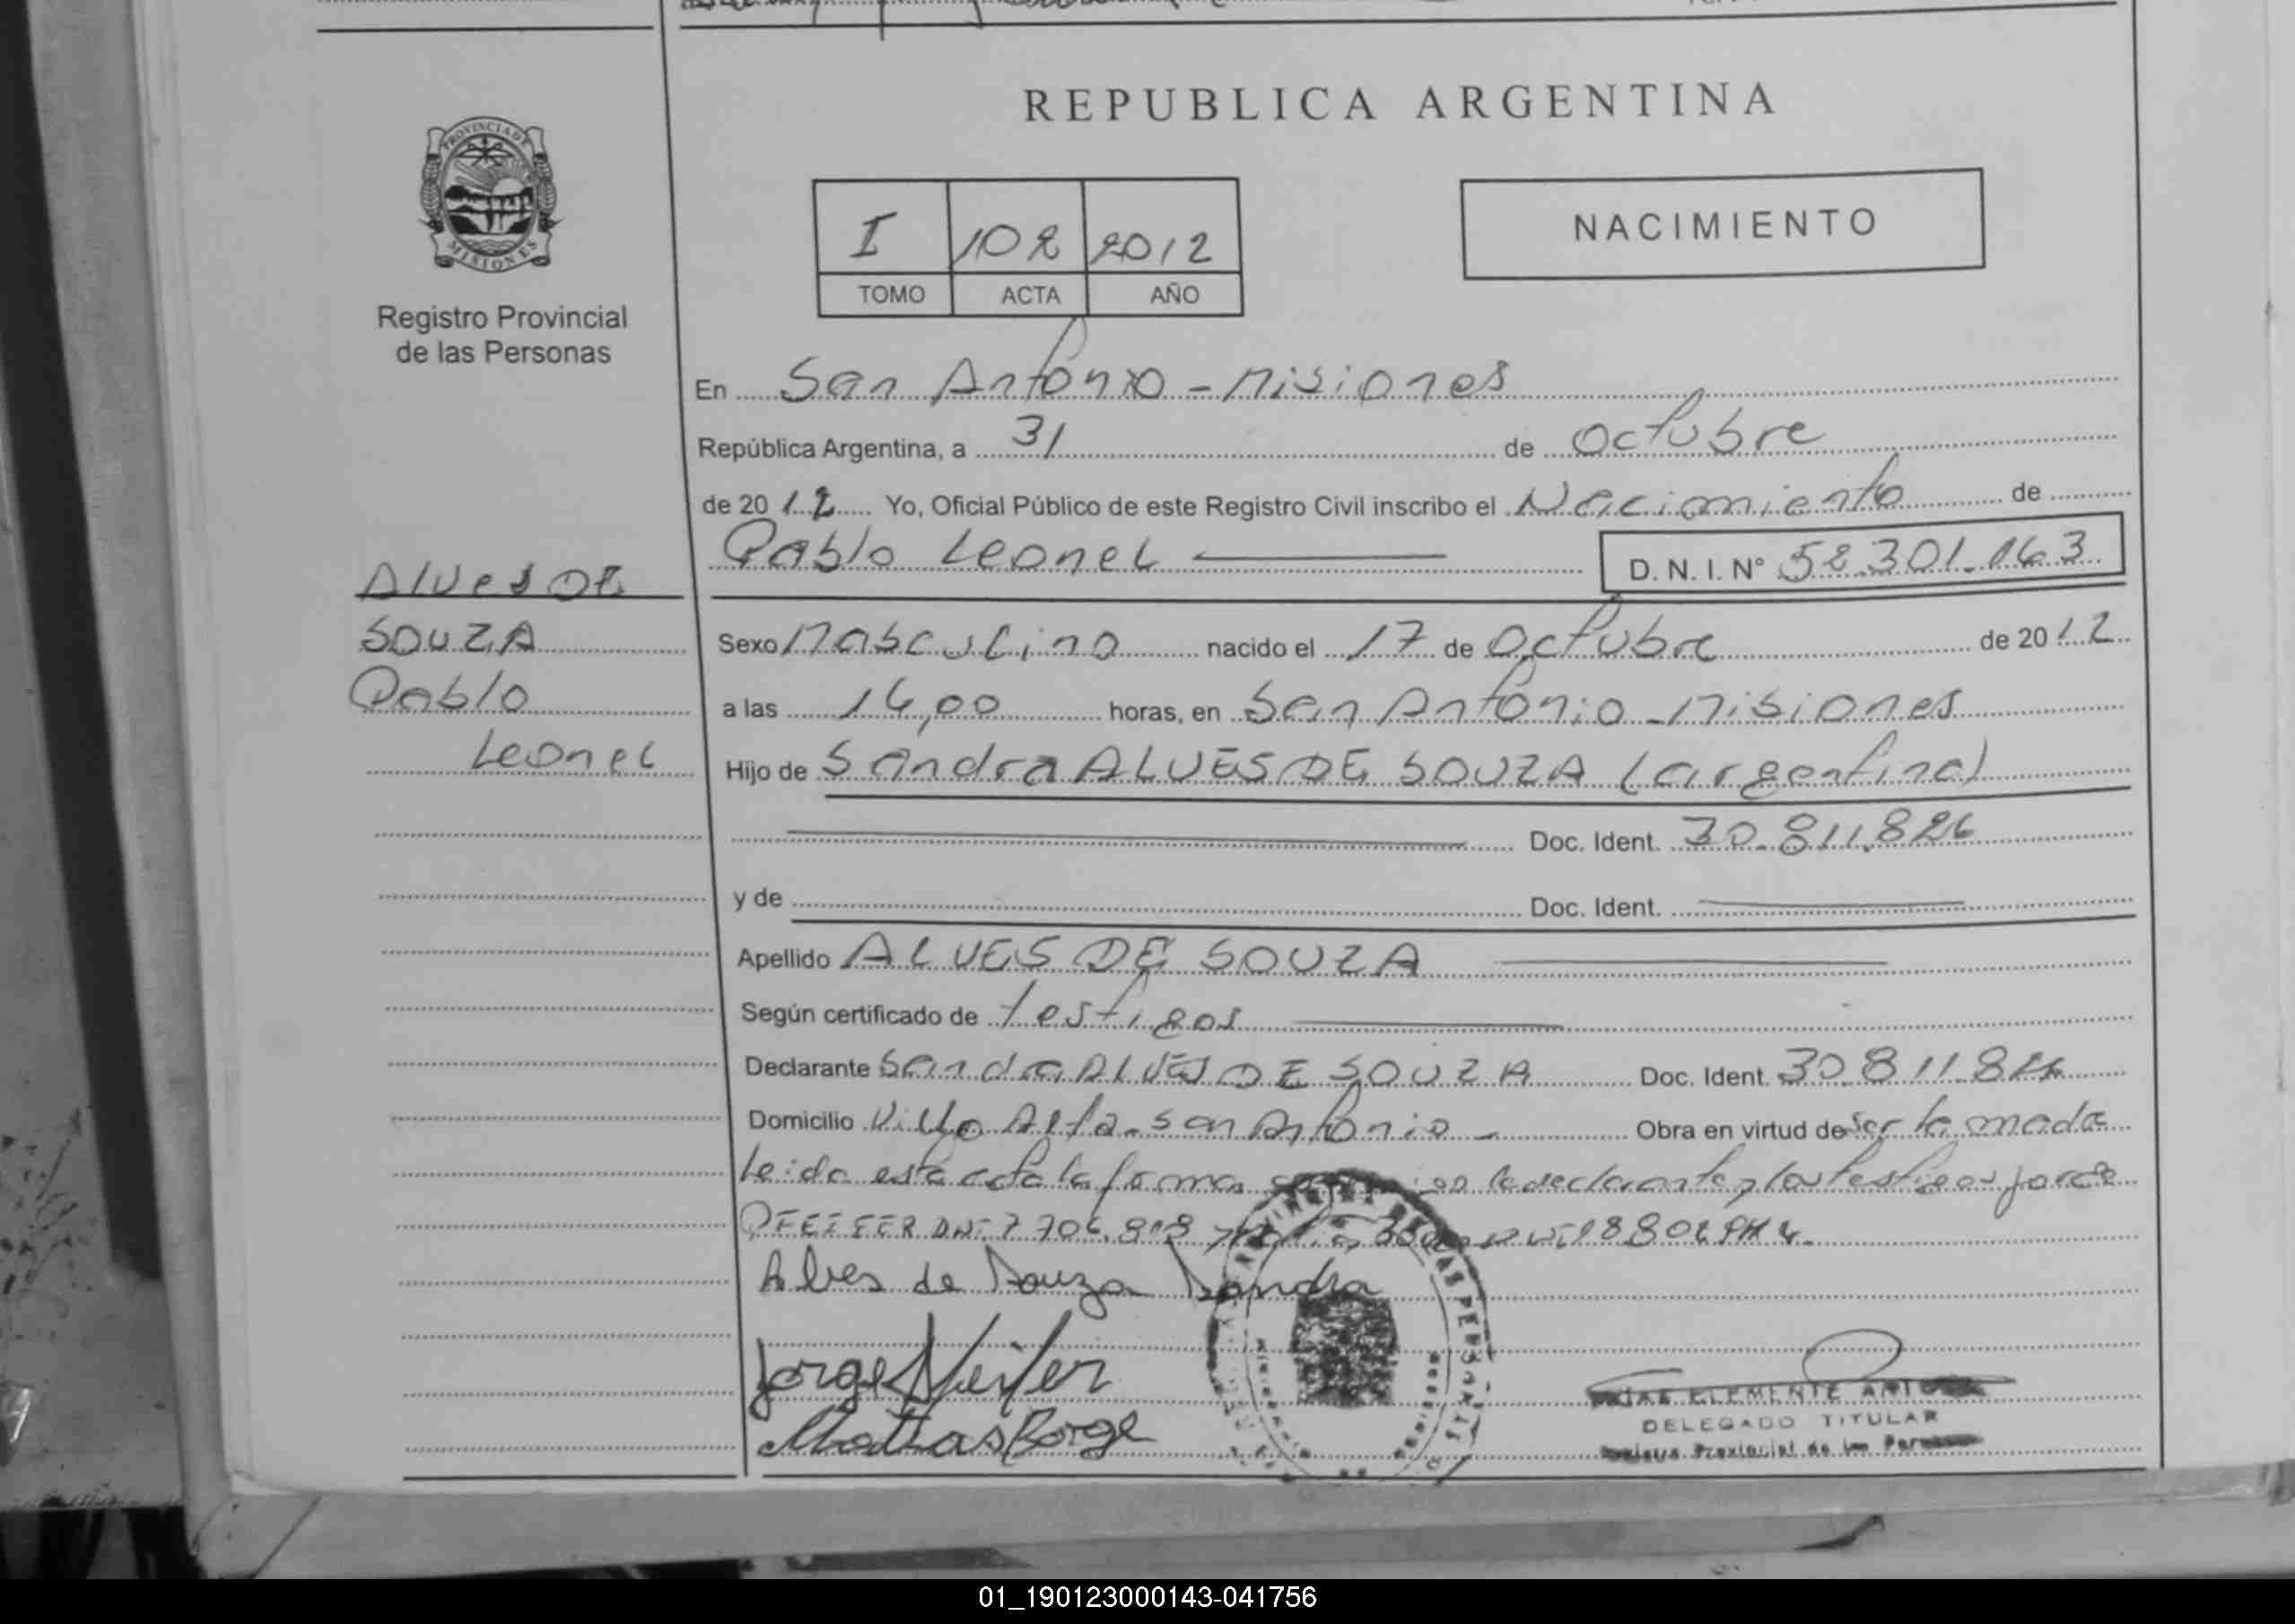 REPUBLICA ARGENTINA
PROVINCIA DE
MISIONES
Registro Provincial
de las Personas
I 102 2012
TOMO ACTA AÑO
NACIMIENTO
En San Antonio - Misiones
República Argentina, a 31 de octubre
de 2012 Yo, Oficial Público de este Registro Civil inscribo el Nacimiento de
Pablo Leonel
D. N. I. N° 52.301.163
ALVES DE
SOUZA
Pablo
Leonel
Sexo Masculino nacido el 17 de Octubre de 2012
a las 14,00 horas, en San Antonio - Misiones
Hijo de Sandra ALVES DE SOUZA (argentina)
Doc. Ident. 30.811.826
y de Doc. Ident.
Apellido ALVES DE SOUZA
Según certificado de testigos
Declarante Sandra ALVES DE SOUZA Doc. Ident. 30.811.82
Domicilio Villa Alta - San Antonio - Obra en virtud de ser la madre
Leida esta acta la firman la declarante y los testigos Jorge
PFEIFER DNI 7.706.818
Alves de Souza Sandra
Jorge Pfeifer
Mattias Borge
CLEMENTE
DELEGADO TITULAR
Provincial de las
01_190123000143-041756